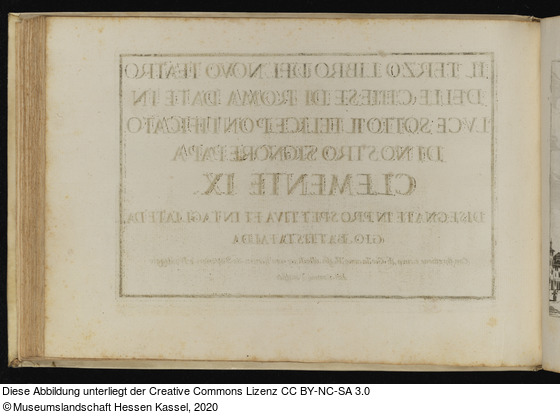 IL TERZO LIBRO DEL NOVO TEATRO
DELLE CHIESE DI ROMA DATE IN
LVCE SOTTO IL FELICE PONTIFICATO
DI NOSTRO SIGNORE PAPA
CLEMENTE IX.
DISEGNATE IN PROSPETTIVA ET INTAGLIATE DA
GIO. BATTISTA FALDA
Diese Abbildung unterliegt der Creative Commons Lizenz CC BY-NC-SA 3.0
©Museumslandschaft Hessen Kassel, 2020